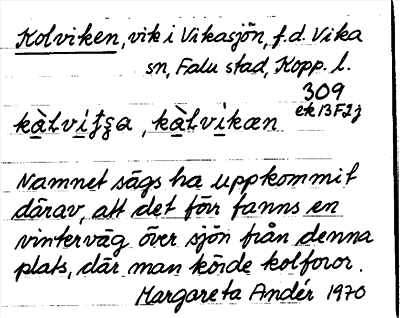 Kolviken, vik i Vikasjön, f.d. Vika
sn, Falu stad, Kopp. l.
309
ek 13F2j
kàlvi, kàlvikæn
Namnet sägs ha uppkommit
därav, att det förr fanns en
vinterväg över sjön från denna
plats, där man körde kolforor.
Margareta Andér 1970